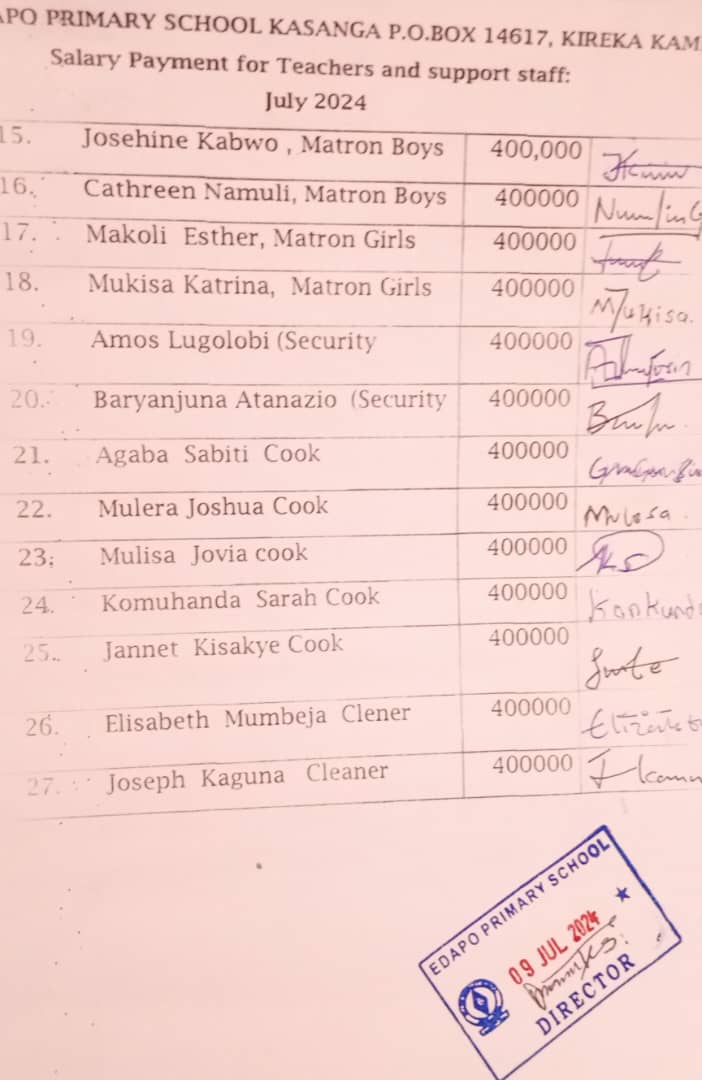 APO PRIMARY SCHOOL KASANGA P.O.BOX 14617, KIREKA KAM
Salary Payment for Teachers and support staff:
July 2024
15. Josehine Kabwo , Matron Boys 400,000
16. Cathreen Namuli, Matron Boys 400000
17. Makoli Esther, Matron Girls 400000
18. Mukisa Katrina, Matron Girls 400000 Mukisa.
19. Amos Lugolobi (Security 400000
20. Baryanjuna Atanazio (Security 400000
21. Agaba Sabiti Cook 400000
22. Mulera Joshua Cook 400000
23; Mulisa Jovia cook 400000
24. Komuhanda Sarah Cook 400000
25.. Jannet Kisakye Cook 400000
26. Elisabeth Mumbeja Clener 400000
27. Joseph Kaguna Cleaner 400000
EDAPO PRIMARY SCHOOL
09 JUL 2024
DIRECTOR